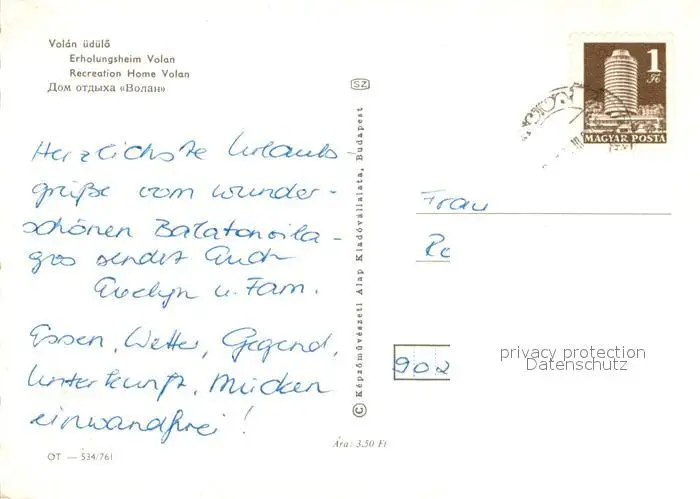 Volán üdülő
Erholungsheim Volan
Recreation Home Volan
Дом отдыха «Волан»
Herzlichste Urlaubs-
grüße vom wunder-
schönen Balatonvila-
gos sendet Euch
Evelyn u. Fam.
Essen, Wetter, Gegend,
Unterkunft, Mücken
einwandfrei!
OT — 534/761
SZ
© Képzőművészeti Alap Kiadóvállalata, Budapest
Ára: 3,50 Ft
1 Ft
MAGYAR POSTA
Frau
902
privacy protection
Datenschutz